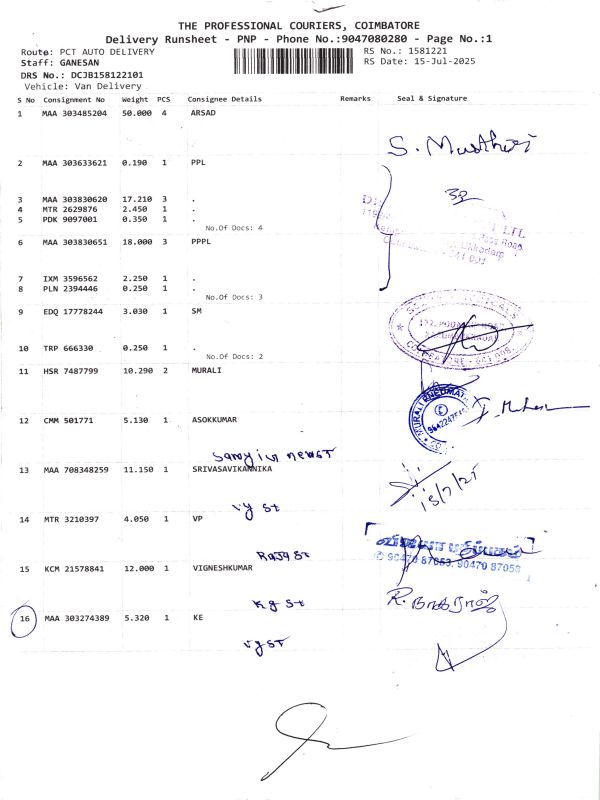 THE PROFESSIONAL COURIERS, COIMBATORE
Delivery Runsheet - PNP - Phone No.:9047080280 - Page No.:1
Route: PCT AUTO DELIVERY RS No.: 1581221
Staff: GANESAN RS Date: 15-Jul-2025
DRS No.: DCJB158122101
Vehicle: Van Delivery
S No Consignment No Weight PCS Consignee Details Remarks Seal & Signature
1 MAA 303485204 50.000 4 ARSAD
2 MAA 303633621 0.190 1 PPL
3 MAA 303830620 17.210 3 .
4 MTR 2629876 2.450 1 .
5 PDK 9097001 0.350 1 .
No.Of Docs: 4
6 MAA 303830651 18.000 3 PPPL
7 IXM 3596562 2.250 1 .
8 PLN 2394446 0.250 1 .
No.Of Docs: 3
9 EDQ 17778244 3.030 1 SM
10 TRP 666330 0.250 1 .
No.Of Docs: 2
11 HSR 7487799 10.290 2 MURALI
12 CMM 501771 5.130 1 ASOKKUMAR
13 MAA 708348259 11.150 1 SRIVASAVIKANNIKA
15/7/25
vy st
14 MTR 3210397 4.050 1 VP
Raja st
90470 87059
15 KCM 21578841 12.000 1 VIGNESHKUMAR
kg st
R. நாகராஜ்
16 MAA 303274389 5.320 1 KE
vy st